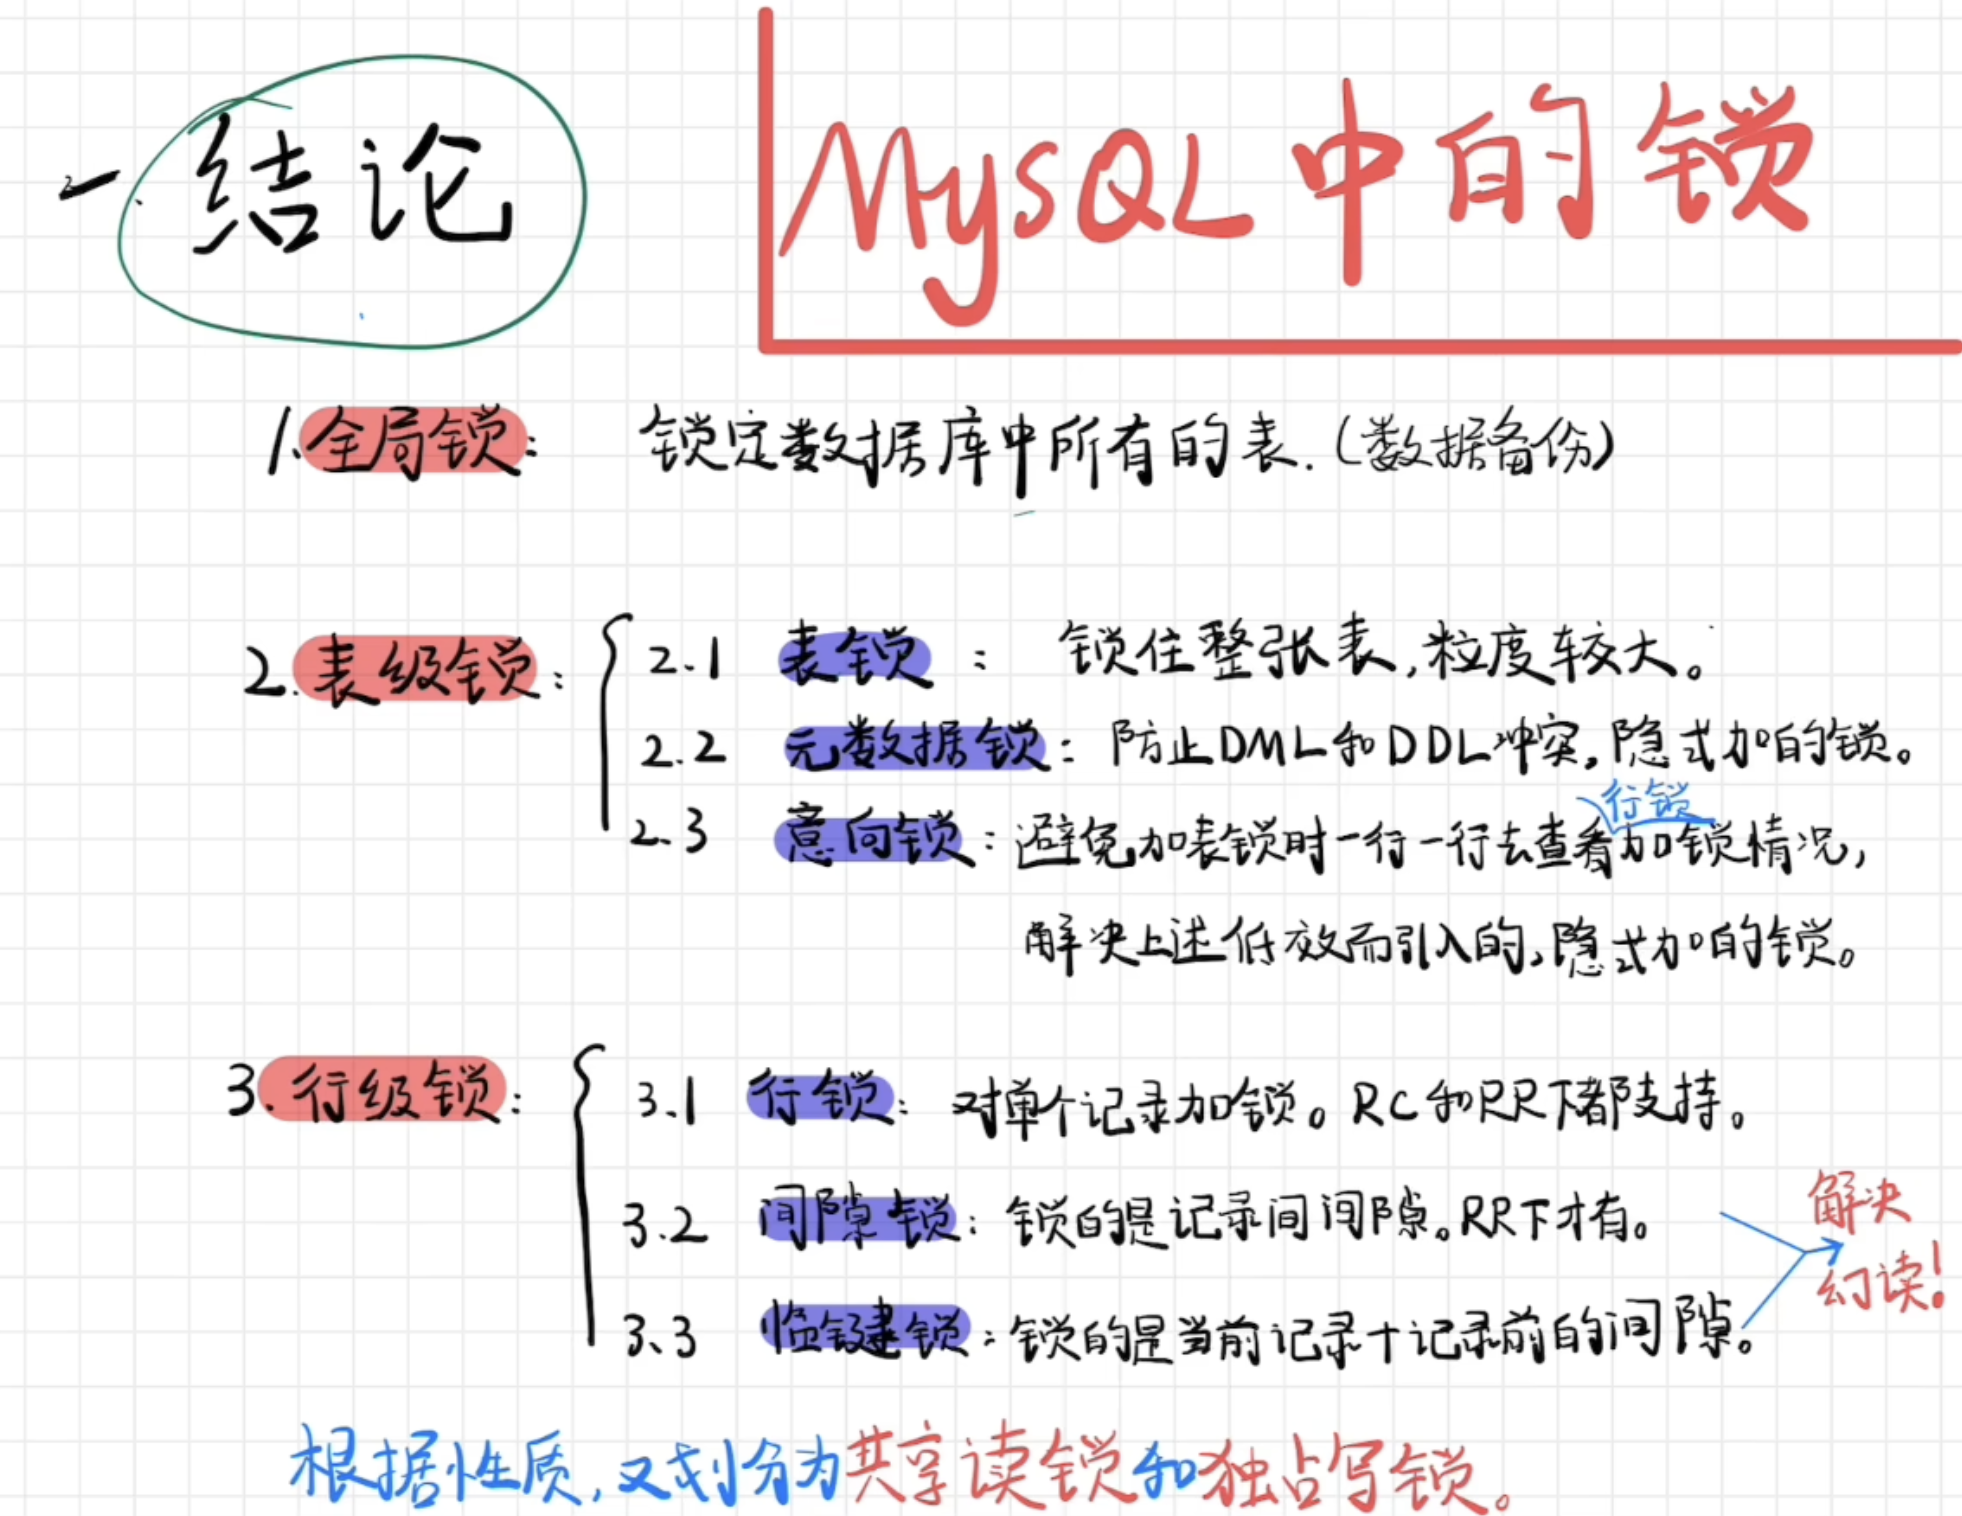 一、结论
MySQL中的锁
1.全局锁: 锁定数据库中所有的表.(数据备份)
2.表级锁:
2.1 表锁: 锁住整张表,粒度较大。
2.2 元数据锁: 防止DML和DDL冲突,隐式加的锁。
行锁
2.3 意向锁: 避免加表锁时一行一行去查看加锁情况,
解决上述低效而引入的,隐式加的锁。
3.行级锁:
3.1 行锁: 对单个记录加锁。RC和RR下都支持。
3.2 间隙锁: 锁的是记录间间隙。RR下才有。
3.3 临键锁: 锁的是当前记录+记录前的间隙。
解决
幻读!
根据性质,又划分为共享读锁和独占写锁。